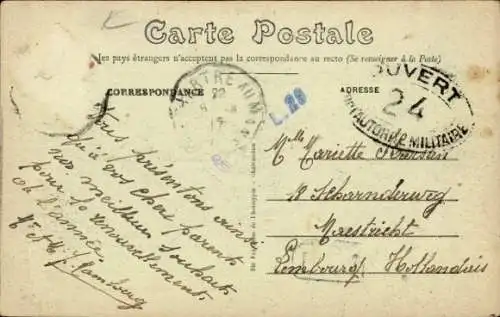 Carte Postale
les pays étrangers n'acceptent pas la correspondance au recto (Se renseigner à la Poste)
CORRESPONDANCE
ADRESSE
22
L. 20
OUVERT
24
AUTORITÉ MILITAIRE
Vous présentons ainsi
qu'à vos chers parents
nos meilleurs souhaits
pour le renouvellement
de l'année
Melle Mariette
18 Scharnderweg
Maestricht
Limbourg Hollandais